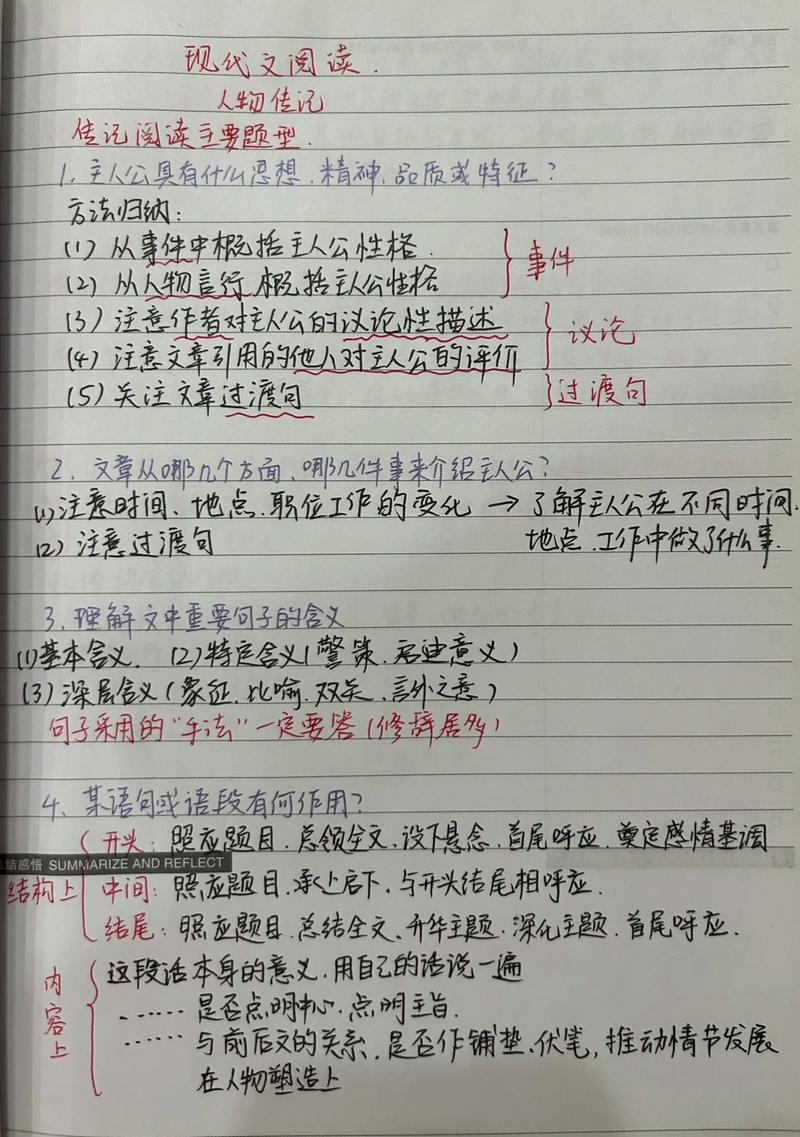 现代文阅读.
人物传记
传记阅读主要题型.
1. 主人公具有什么思想、精神、品质或特征?
方法归纳:
(1) 从事件中概括主人公性格.
(2) 从人物言行概括主人公性格
事件
(3) 注意作者对主人公的议论性描述
(4) 注意文章引用的他人对主人公的评价
议论
(5) 关注文章过渡句
过渡句
2. 文章从哪几个方面、哪几件事来介绍主人公?
(1) 注意时间、地点、职位工作的变化 → 了解主人公在不同时间.
(2) 注意过渡句
地点、工作中做了什么事.
3. 理解文中重要句子的含义
(1) 基本含义. (2) 特定含义(警策、启迪意义)
(3) 深层含义(象征、比喻、双关、言外之意)
句子采用的"手法"一定要答(修辞居多)
4. 某语句或语段有何作用?
结构上
开头: 照应题目、总领全文、设下悬念、首尾呼应、奠定感情基调
结感悟 SUMMARIZE AND REFLECT
中间: 照应题目、承上启下、与开头结尾相呼应.
结尾: 照应题目、总结全文、升华主题、深化主题、首尾呼应.
内容上
这段话本身的意义、用自己的话说一遍
...... 是否点明中心、点明主旨.
...... 与前后文的关系, 是否作铺垫、伏笔, 推动情节发展
在人物塑造上